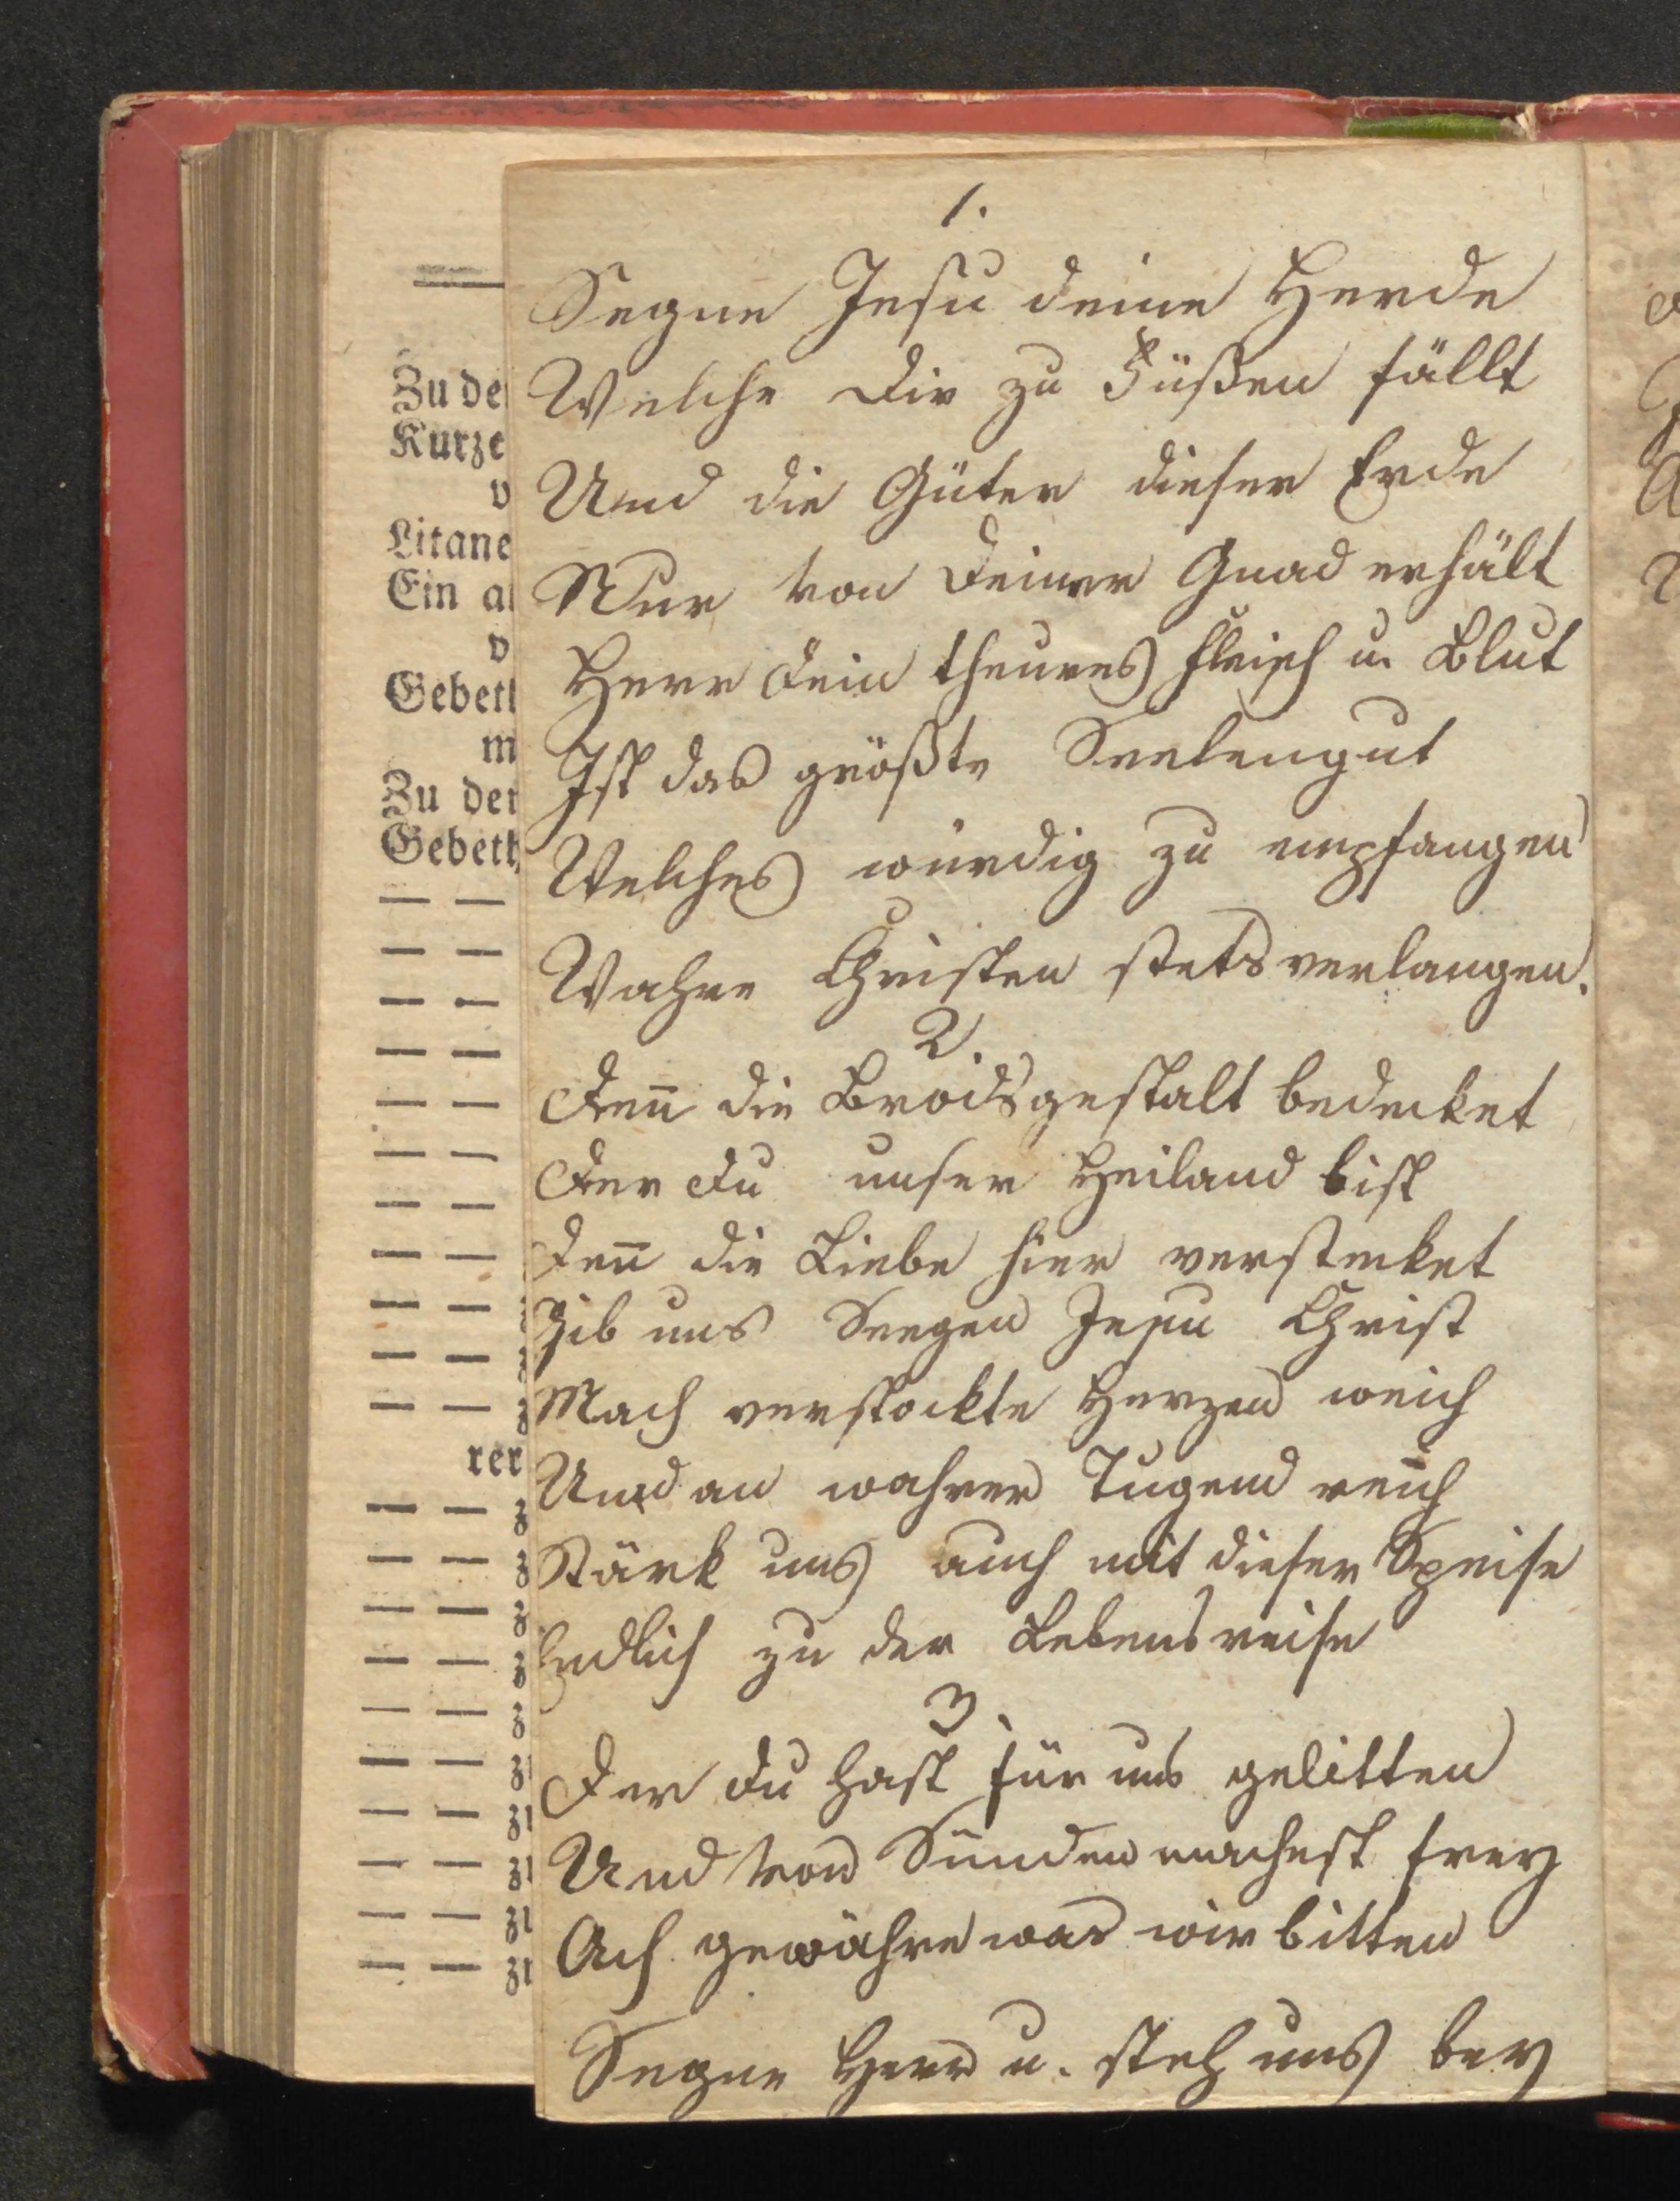 1.
Segne Jesu deine Herde
Welche Dir zu Füßen fällt
Und die Güter dieser Erde
Nur von Deiner Gnad erhält
Herr Dein theures Fleisch u. Blut
Ist das größte Seelengut
Welches würdig zu empfangen
Wahre Christen stets verlangen.
2.
Den̅ die Brodsgestalt bedecket
Der Du unser Heiland bist
Den̅ die Liebe hier verstecket
Gib uns Seegen Jesu Christ
Mach verstockte Herzen weich
Und an wahrer Tugend reich
Stärk uns auch mit dieser Speise
Endlich zu der Lebensreise
3.
Der Du hast für uns gelitten
Und von Sünden machest frey
Ach gewähre was wir bitten
Segne Herr u. steh uns bey
Zu de
Kurze
v
Litane
Ein a
v
Gebet
m
Zu der
Gebeth
rer